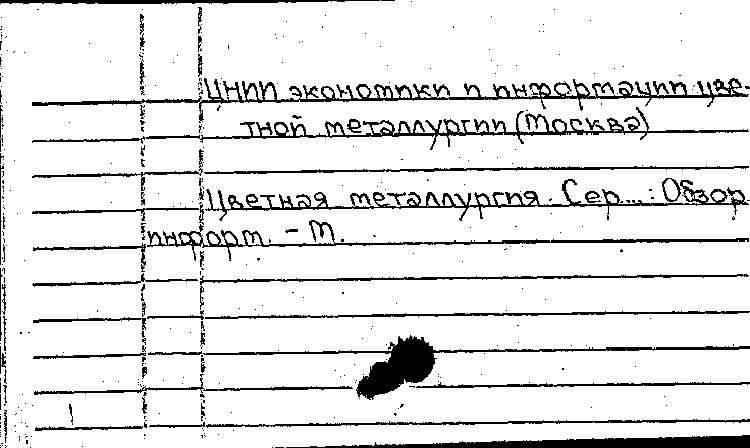 ЦНИИ экономики и информации цве-
тной металлургии (Москва)
Цветная металлургия. Сер...: Обзор.
информ. - М.